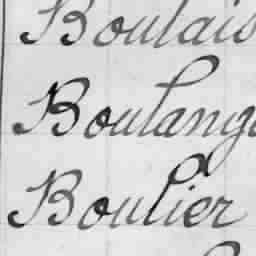 Boulais
Boulang
Boulier